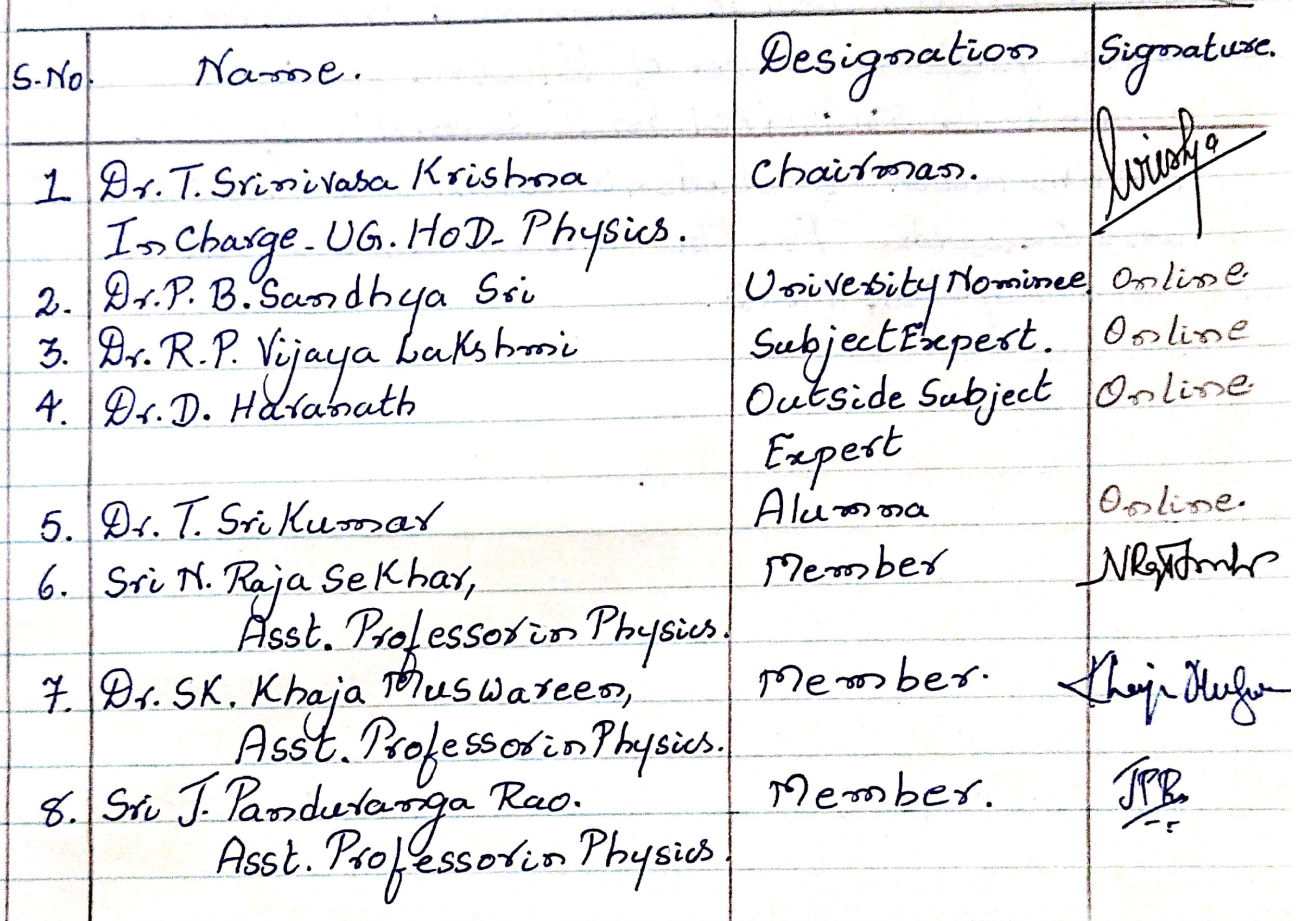 S.No. Name. Designation Signature.
1 Dr. T. Srinivasa Krishna Chairman.
In Charge - UG. HoD - Physics.
2. Dr. P. B. Sandhya Sri University Nominee Online.
3. Dr. R.P. Vijaya Lakshmi Subject Expert. Online
4. Dr. D. Haranath Outside Subject Online.
Expert
5. Dr. T. Sri Kumar Alumna Online.
6. Sri N. Raja Sekhar, Member
Asst. Professor in Physics.
7. Dr. SK. Khaja Muswareen, Member.
Asst. Professor in Physics.
8. Sri J. Panduranga Rao. Member. JPR
Asst. Professor in Physics.